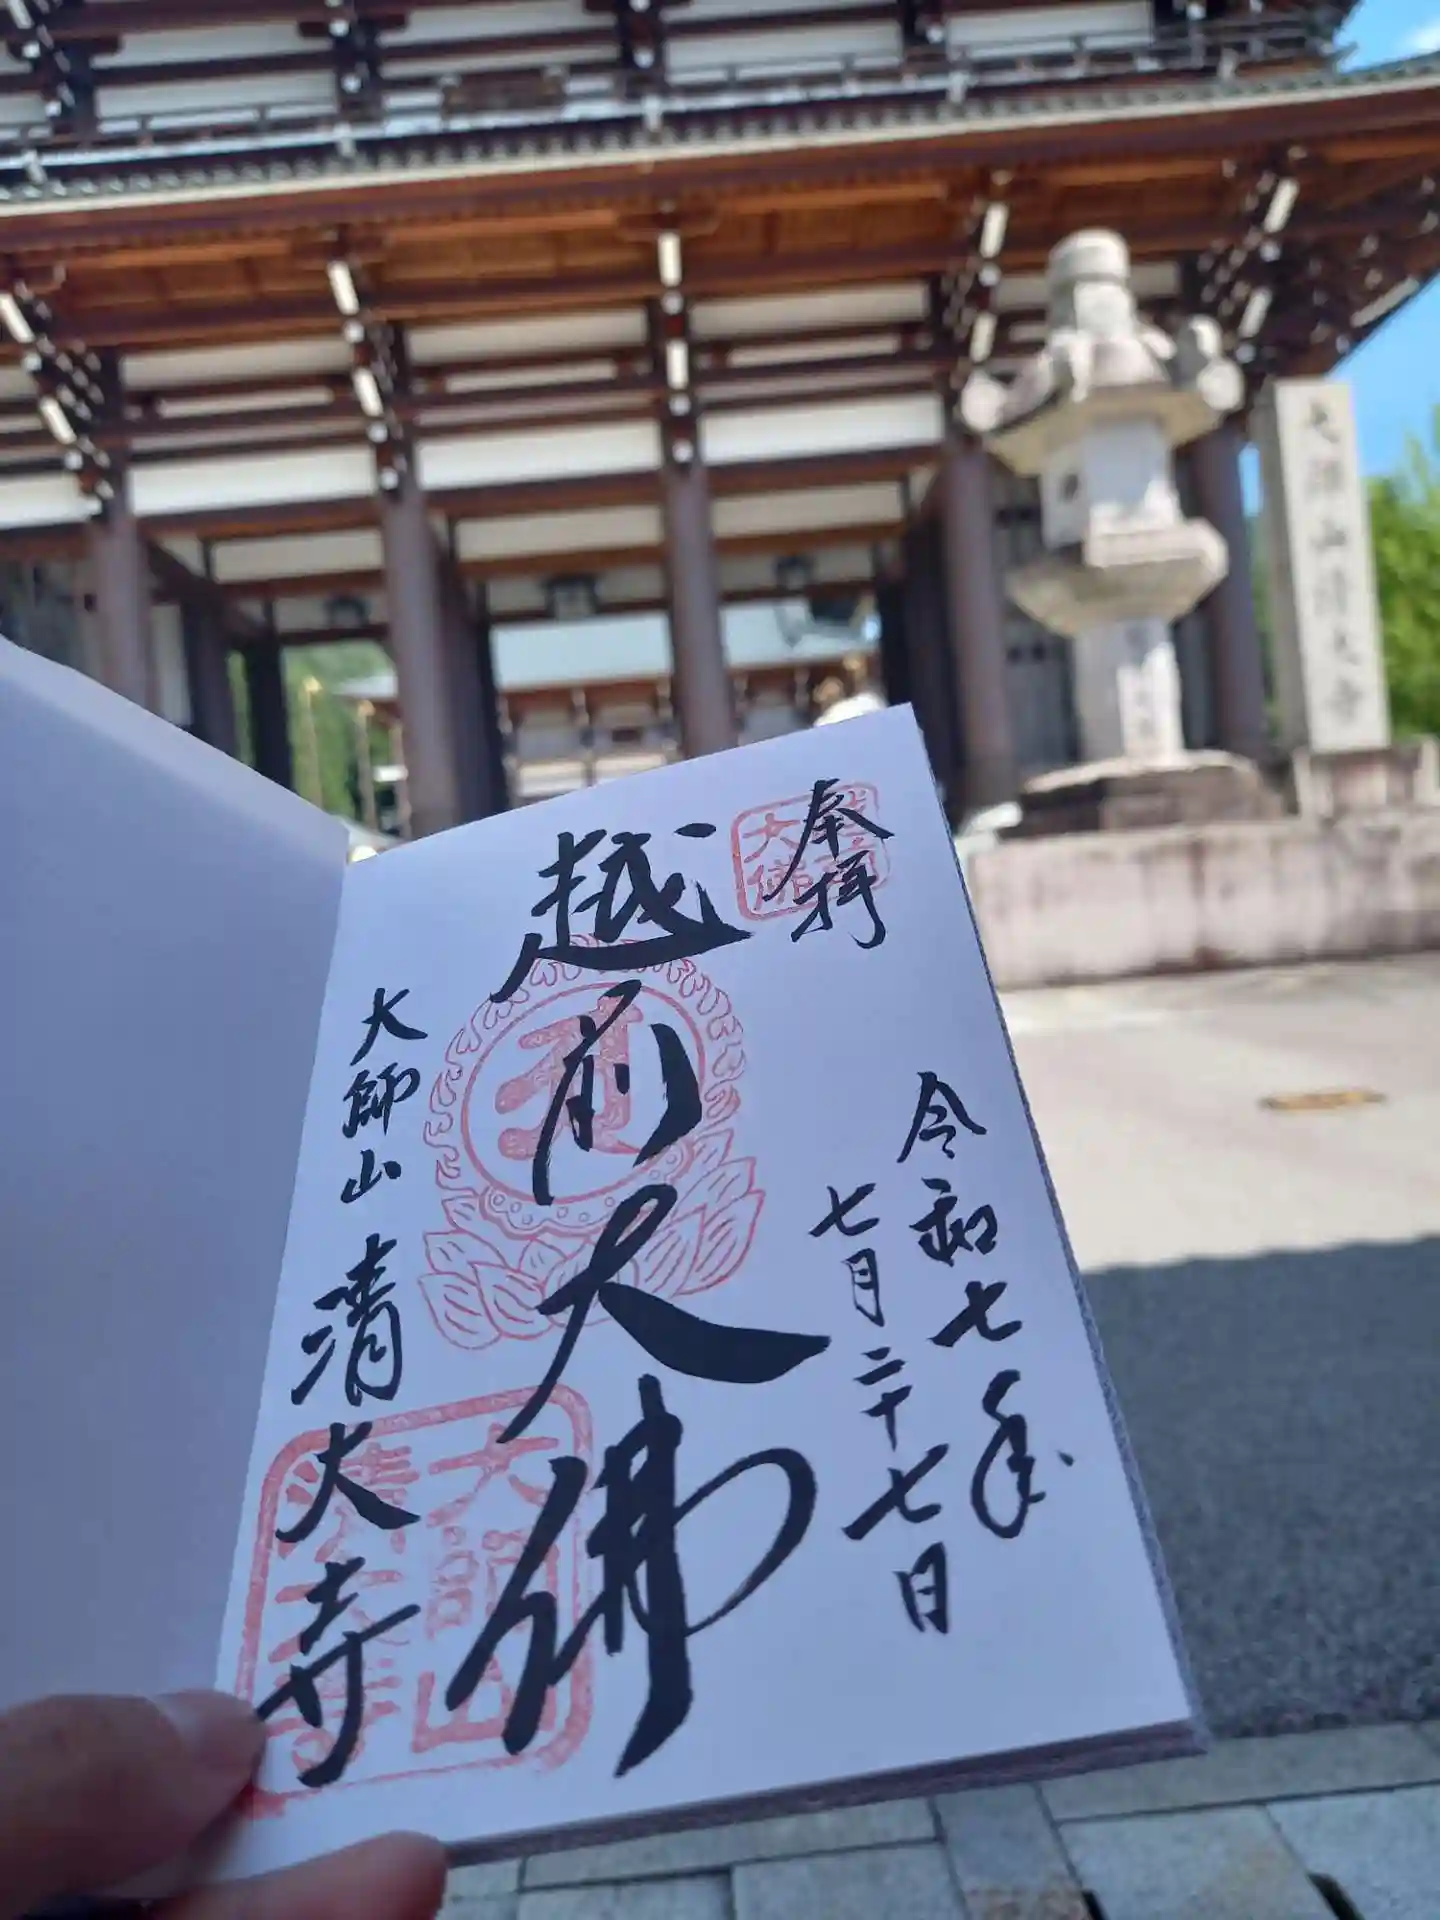 奉拝
越前
大佛
令和七年
七月二十七日
越前大佛
大師山 清大寺
大師山
清大寺
大師山清大寺